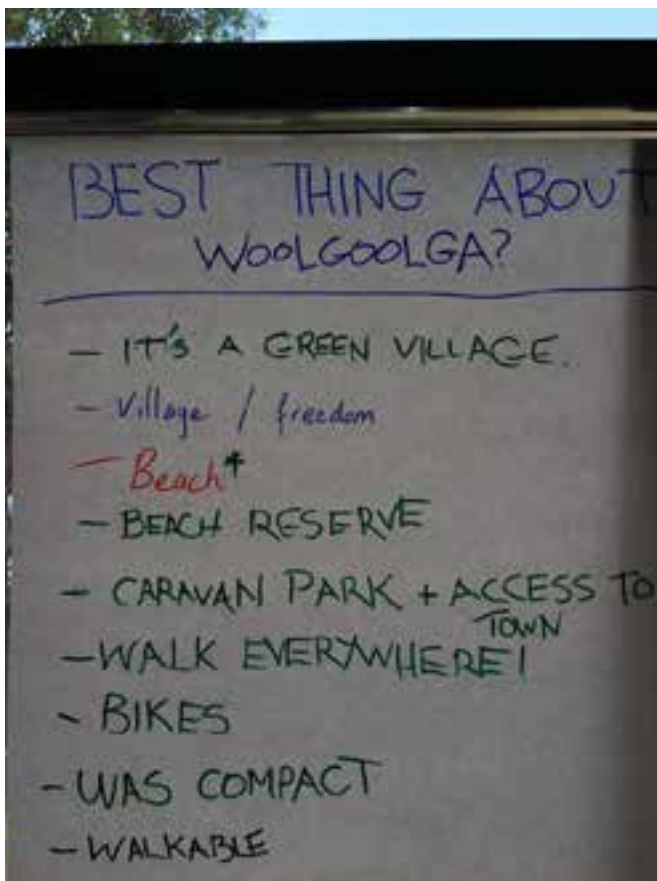 BEST THING ABOUT
WOOLGOOLGA?
- IT'S A GREEN VILLAGE.
- Village / freedom
- Beach*
- BEACH RESERVE
- CARAVAN PARK + ACCESS TO
TOWN
- WALK EVERYWHERE!
- BIKES
- WAS COMPACT
- WALKABLE